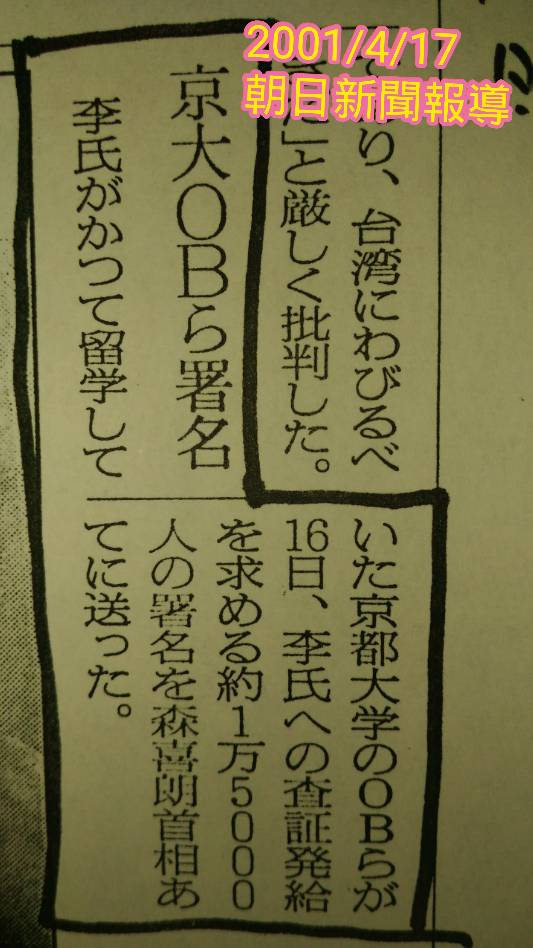 2001/4/17
朝日新聞報導
り、台湾にわびるべ
」と厳しく批判した。
京大OBら署名
李氏がかつて留学して
いた京都大学のOBらが
16日、李氏への査証発給
を求める約1万5000
人の署名を森喜朗首相あ
てに送った。